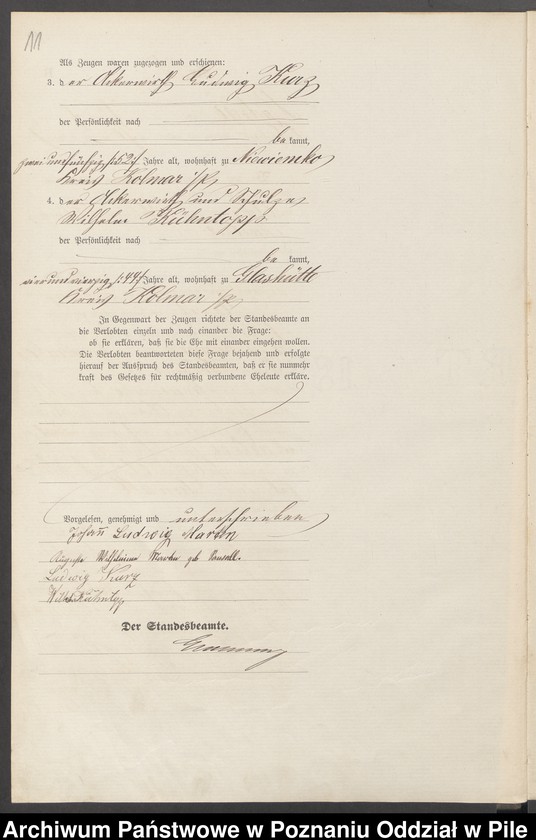 11
Als Zeugen waren zugezogen und erschienen:
3. der Ackerwirth Ludwig Kurz
der Persönlichkeit nach
bekannt,
zweiundfünfzig /:52:/ Jahre alt, wohnhaft zu Niewiemko
Kreis Kolmar i/P.
4. der Ackerwirth und Schulze
Wilhelm Kühntopp
der Persönlichkeit nach
bekannt,
vierundvierzig /:44:/ Jahre alt, wohnhaft zu Glashütte
Kreis Kolmar i/P.
In Gegenwart der Zeugen richtete der Standesbeamte an
die Verlobten einzeln und nach einander die Frage:
ob sie erklären, daß sie die Ehe mit einander eingehen wollen.
Die Verlobten beantworteten diese Frage bejahend und erfolgte
hierauf der Ausspruch des Standesbeamten, daß er sie nunmehr
kraft des Gesetzes für rechtmäßig verbundene Eheleute erkläre.
Vorgelesen, genehmigt und unterschrieben
Johann Ludwig Martin
Auguste Wilhelmine Martin geb
Ludwig Kurz
Wilh. Kühntopp
Der Standesbeamte.
Archiwum Państwowe w Poznaniu Oddział w Pile